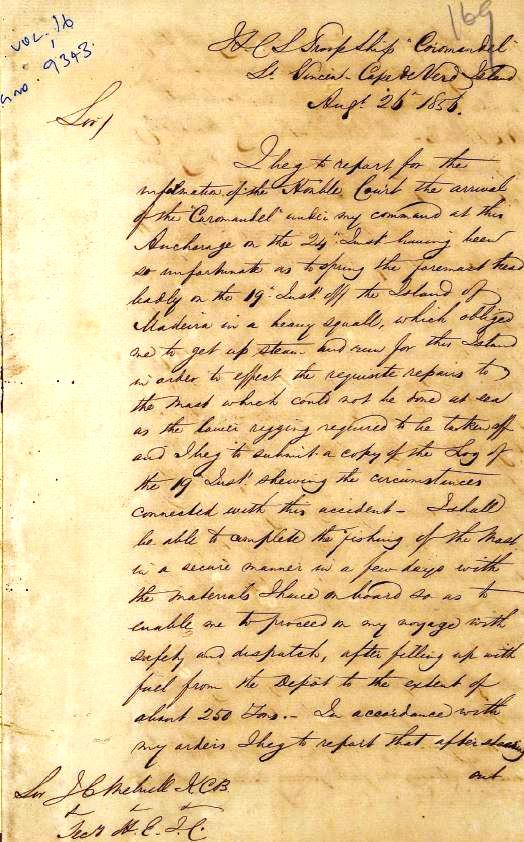 169
VOL. 16
9343.
H C S Troop Ship "Coromandel"
St. Vincent Cape de Verd Island
Augt. 26th 1856.
Sir /
I beg to report for the
information of the Honble Court the arrival
of the "Coromandel" under my command at this
Anchorage on the 24th Inst. having been
so unfortunate as to spring the foremast head
badly on the 19th Inst. off the Island of
Madeira in a heavy squall, which obliged
me to get up steam and run for this Island
in order to effect the requisite repairs to
the Mast which could not be done at sea
as the lower rigging required to be taken off
and I beg to submit a copy of the Log of
the 19th Inst. shewing the circumstances
connected with this accident - I shall
be able to complete the fishing of the Mast
in a secure manner in a few days with
the materials I have on board so as to
enable me to proceed on my voyage with
safety and dispatch, after filling up with
fuel from the Depôt to the extent of
about 250 Tons. - In accordance with
my orders I beg to report that after
out
Sir J C Melvill K.C.B.
Secy H. E. I. C.